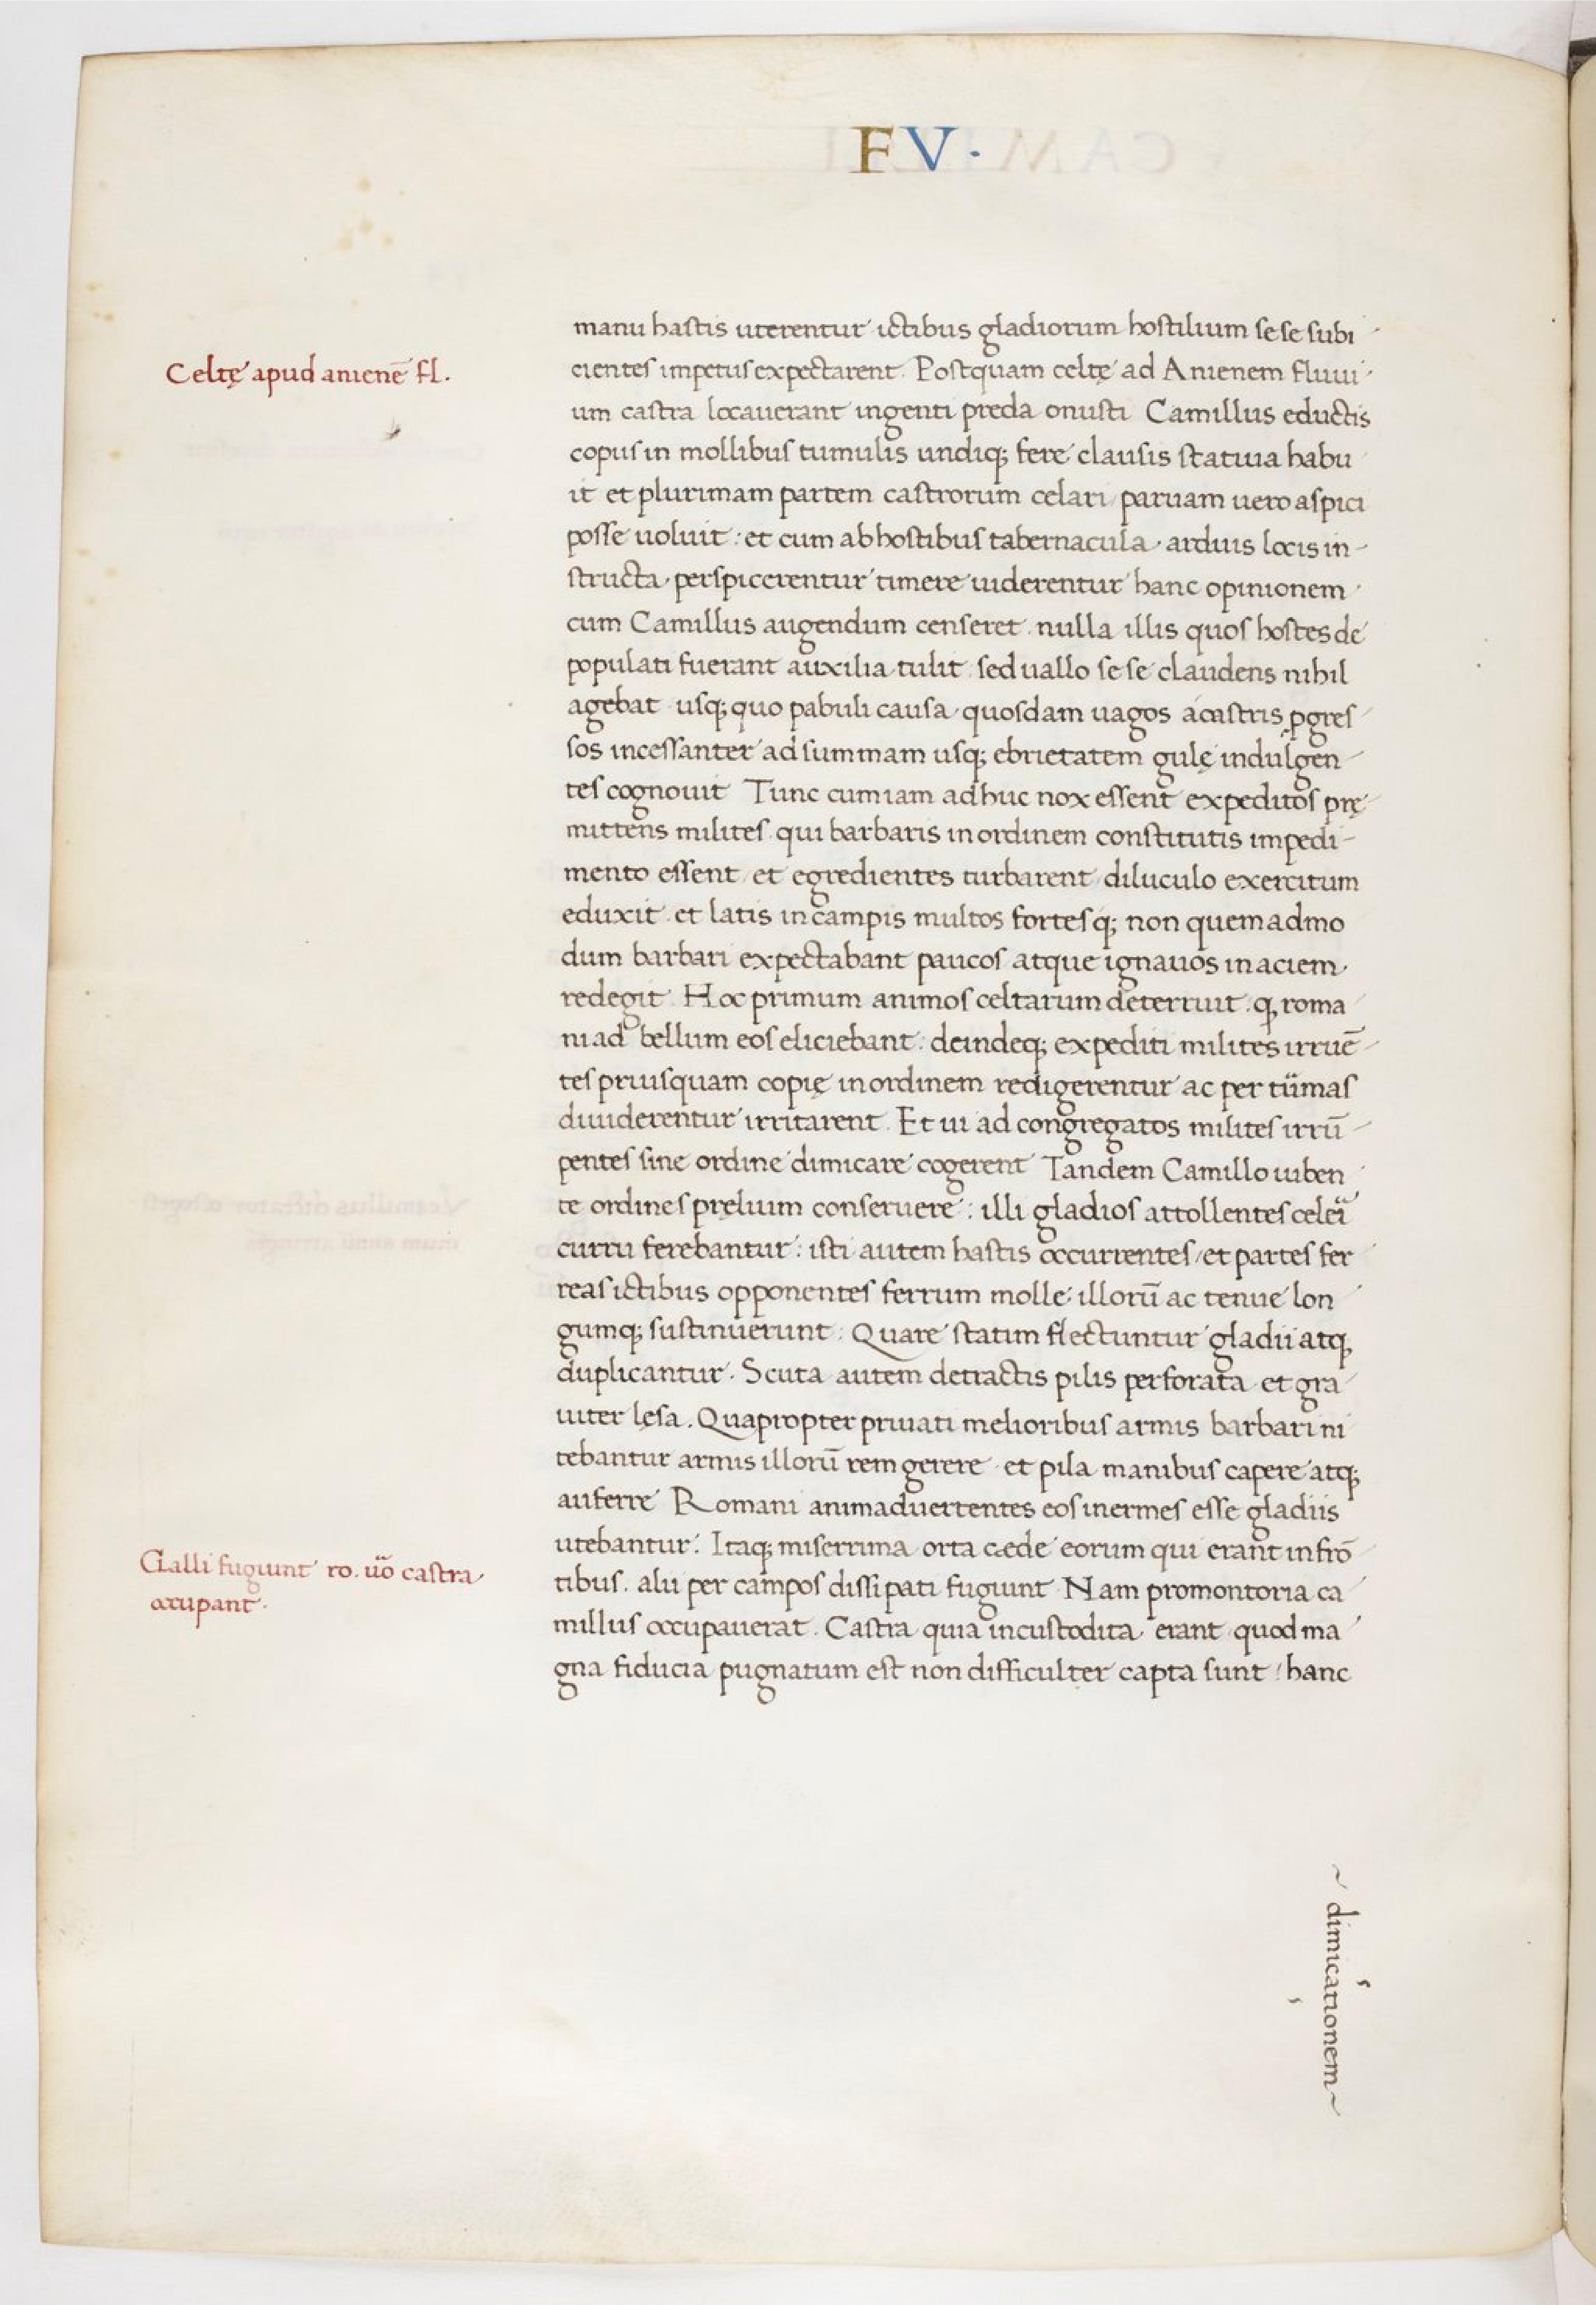 FV·
manu hastis uterentur ictibus gladiorum hostilium sese subi
Celtę apud anienē fl.
cientes impetus expectarent. Postquam celtę ad Anienem fluui
um castra locauerant ingenti preda onusti Camillus eductis
copiis in mollibus tumulis undiq; fere clausis statiua habu
it et plurimam partem castrorum celari / paruam uero aspici
posse uoluit : et cum ab hostibus tabernacula · arduis locis in-
structa · perspicerentur timere uiderentur hanc opinionem
cum Camillus augendum censeret · nulla illis quos hostes de
populati fuerant auxilia tulit : sed uallo sese claudens nihil
agebat usq; quo pabuli causa quosdam uagos a castris ꝓgres
sos incessanter ad summam usq; ebrietatem gulę indulgen-
tes cognouit Tunc cum iam adhuc nox essent expeditos prę
mittens milites qui barbaris in ordinem constitutis impedi-
mento essent / et egredientes turbarent / diluculo exercitum
eduxit · et latis in campis multos fortesq; non quemadmo
dum barbari expectabant paucos atque ignauos in aciem
redegit. Hoc primum animos celtarum deterruit · ꝙ roma
ni ad bellum eos eliciebant : deindeq; expediti milites irruē-
tes priusquam copię in ordinem redigerentur ac per tümas
diuiderentur irritarent. Et ui ad congregatos milites irrū-
pentes sine ordine dimicare cogerent Tandem Camillo iuben
te ordines pręlium conseruere : illi gladios attollentes celeī
curru ferebantur : isti autem hastis occurrentes / et partes fer
reas ictibus opponentes ferrum molle illorū ac tenue lon
gumq; sustinuerunt : Quare statim flectuntur gladii atq;
duplicantur. Scuta autem detractis pilis perforata et gra
uiter lęsa. Quapropter priuati melioribus armis barbari ni
tebantur armis illorū rem gerere · et pila manibus capere atq;
auferre Romani animaduertentes eos inermes esse gladiis
utebantur. Itaq; miserrima orta cæde eorum qui erant in frō
Galli fugiunt ro. uō castra
occupant.
tibus. alii per campos dissipati fugiunt Nam promontoria ca
millus occupauerat. Castra quia incustodita erant quod ma
gna fiducia pugnatum est non difficulter capta sunt : hanc
~ dimicationem ~